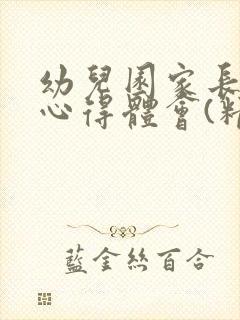 幼兒園家長
心得體會(精
藍金絲百合